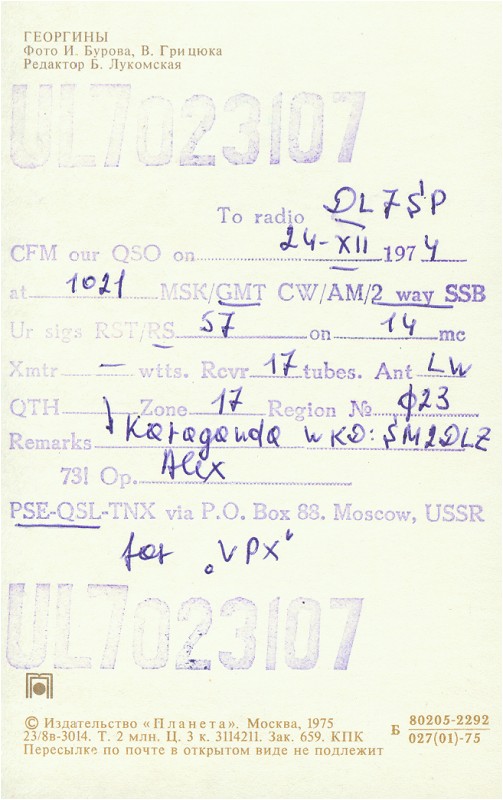 ГЕОРГИНЫ
Фото И. Бурова, В. Грицюка
Редактор Б. Лукомская
UL7023107
To radio DL7SP
CFM our QSO on 24-XII 1974
at 1021 MSK/GMT CW/AM/2 way SSB
Ur sigs RST/RS 57 on 14 mc
Xmtr — wtts. Rcvr 17 tubes. Ant LW
QTH Zone 17 Region № φ23
Remarks Karaganda WKD: SM2DLZ
731 Op. Alex
PSE-QSL-TNX via P.O. Box 88. Moscow, USSR
for „VPX“
UL7023107
© Издательство «Планета». Москва, 1975
23/8в-3014. Т. 2 млн. Ц. 3 к. 3114211. Зак. 659. КПК
Пересылке по почте в открытом виде не подлежит
Б 80205-2292
027(01)-75